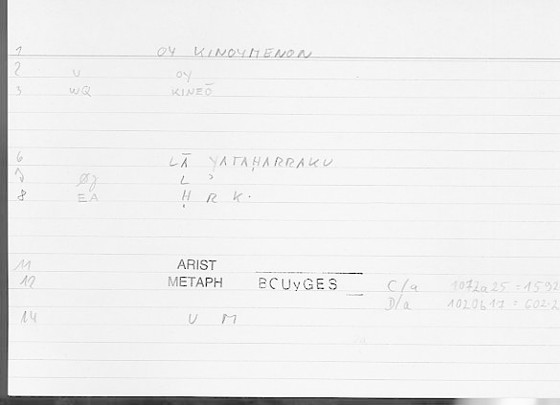 1 OY KINOYMENON
2 U OY
3 WQ KINEŌ
6 LĀ YATAḤARRAKU
7 Øz L ʾ
8 EA Ḥ R K.
11 ARIST
12 METAPH BOUyGES C/a 1072a25 = 1592
D/a 1020b17 = 602.2
14 U M